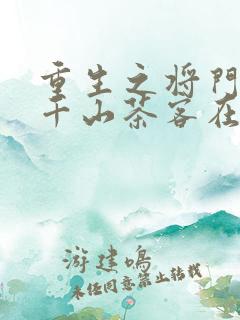 重生之将门
千山茶客在
游建鸣
未经同意禁止转载